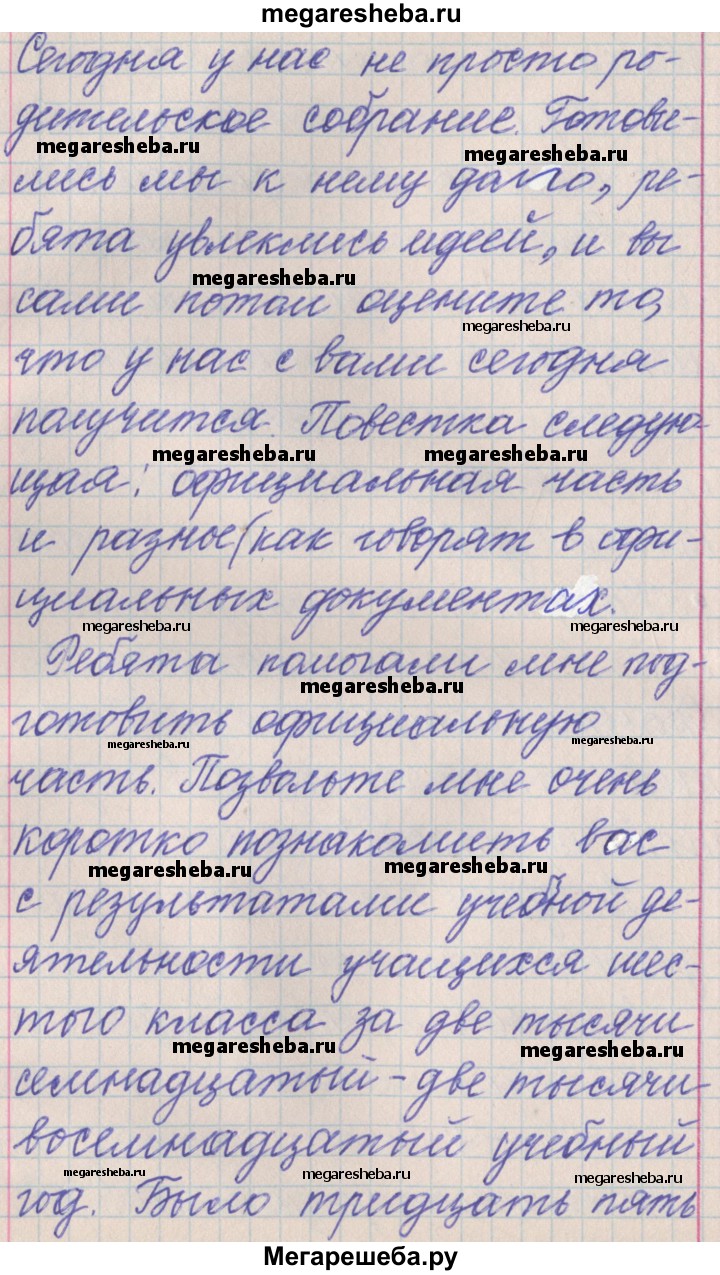 megaresheba.ru
Сегодня у нас не просто ро-
дительское собрание. Готови-
megaresheba.ru
megaresheba.ru
лись мы к нему долго, ре-
бята увлеклись идеей, и вы
megaresheba.ru
сами потом оцените то,
megaresheba.ru
что у нас с вами сегодня
получится. Повестка следую-
megaresheba.ru
megaresheba.ru
щая: официальная часть
и разное (как говорят в офи-
циальных документах.
megaresheba.ru
megaresheba.ru
Ребята помогали мне под-
megaresheba.ru
готовить официальную
megaresheba.ru
megaresheba.ru
часть. Позвольте мне очень
коротко познакомить вас
megaresheba.ru
megaresheba.ru
с результатами учебной де-
ятельности учащихся шес-
того класса за две тысячи
megaresheba.ru
megaresheba.ru
семнадцатый - две тысячи
восемнадцатый учебный
megaresheba.ru
megaresheba.ru
megaresheba.ru
год. Было тридцать пять
Мегарешеба.ру